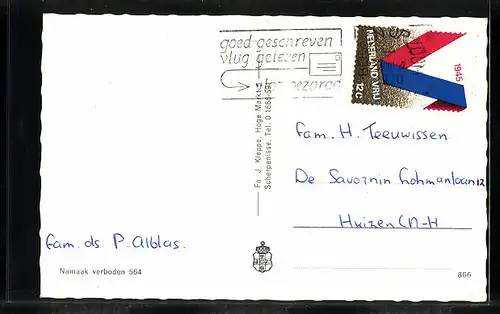 goed geschreven
vlug gelezen
bezorgd
NEDERLAND VRIJ
12c
1945
Fa J. Kloppe, Hoge Markt
Scherpenisse. Tel. 0 1666
fam. H. Teeuwissen
De Savornin Lohmanlaan 12
Huizen (N-H
fam. ds P. Alblas.
Namaak verboden 564
866